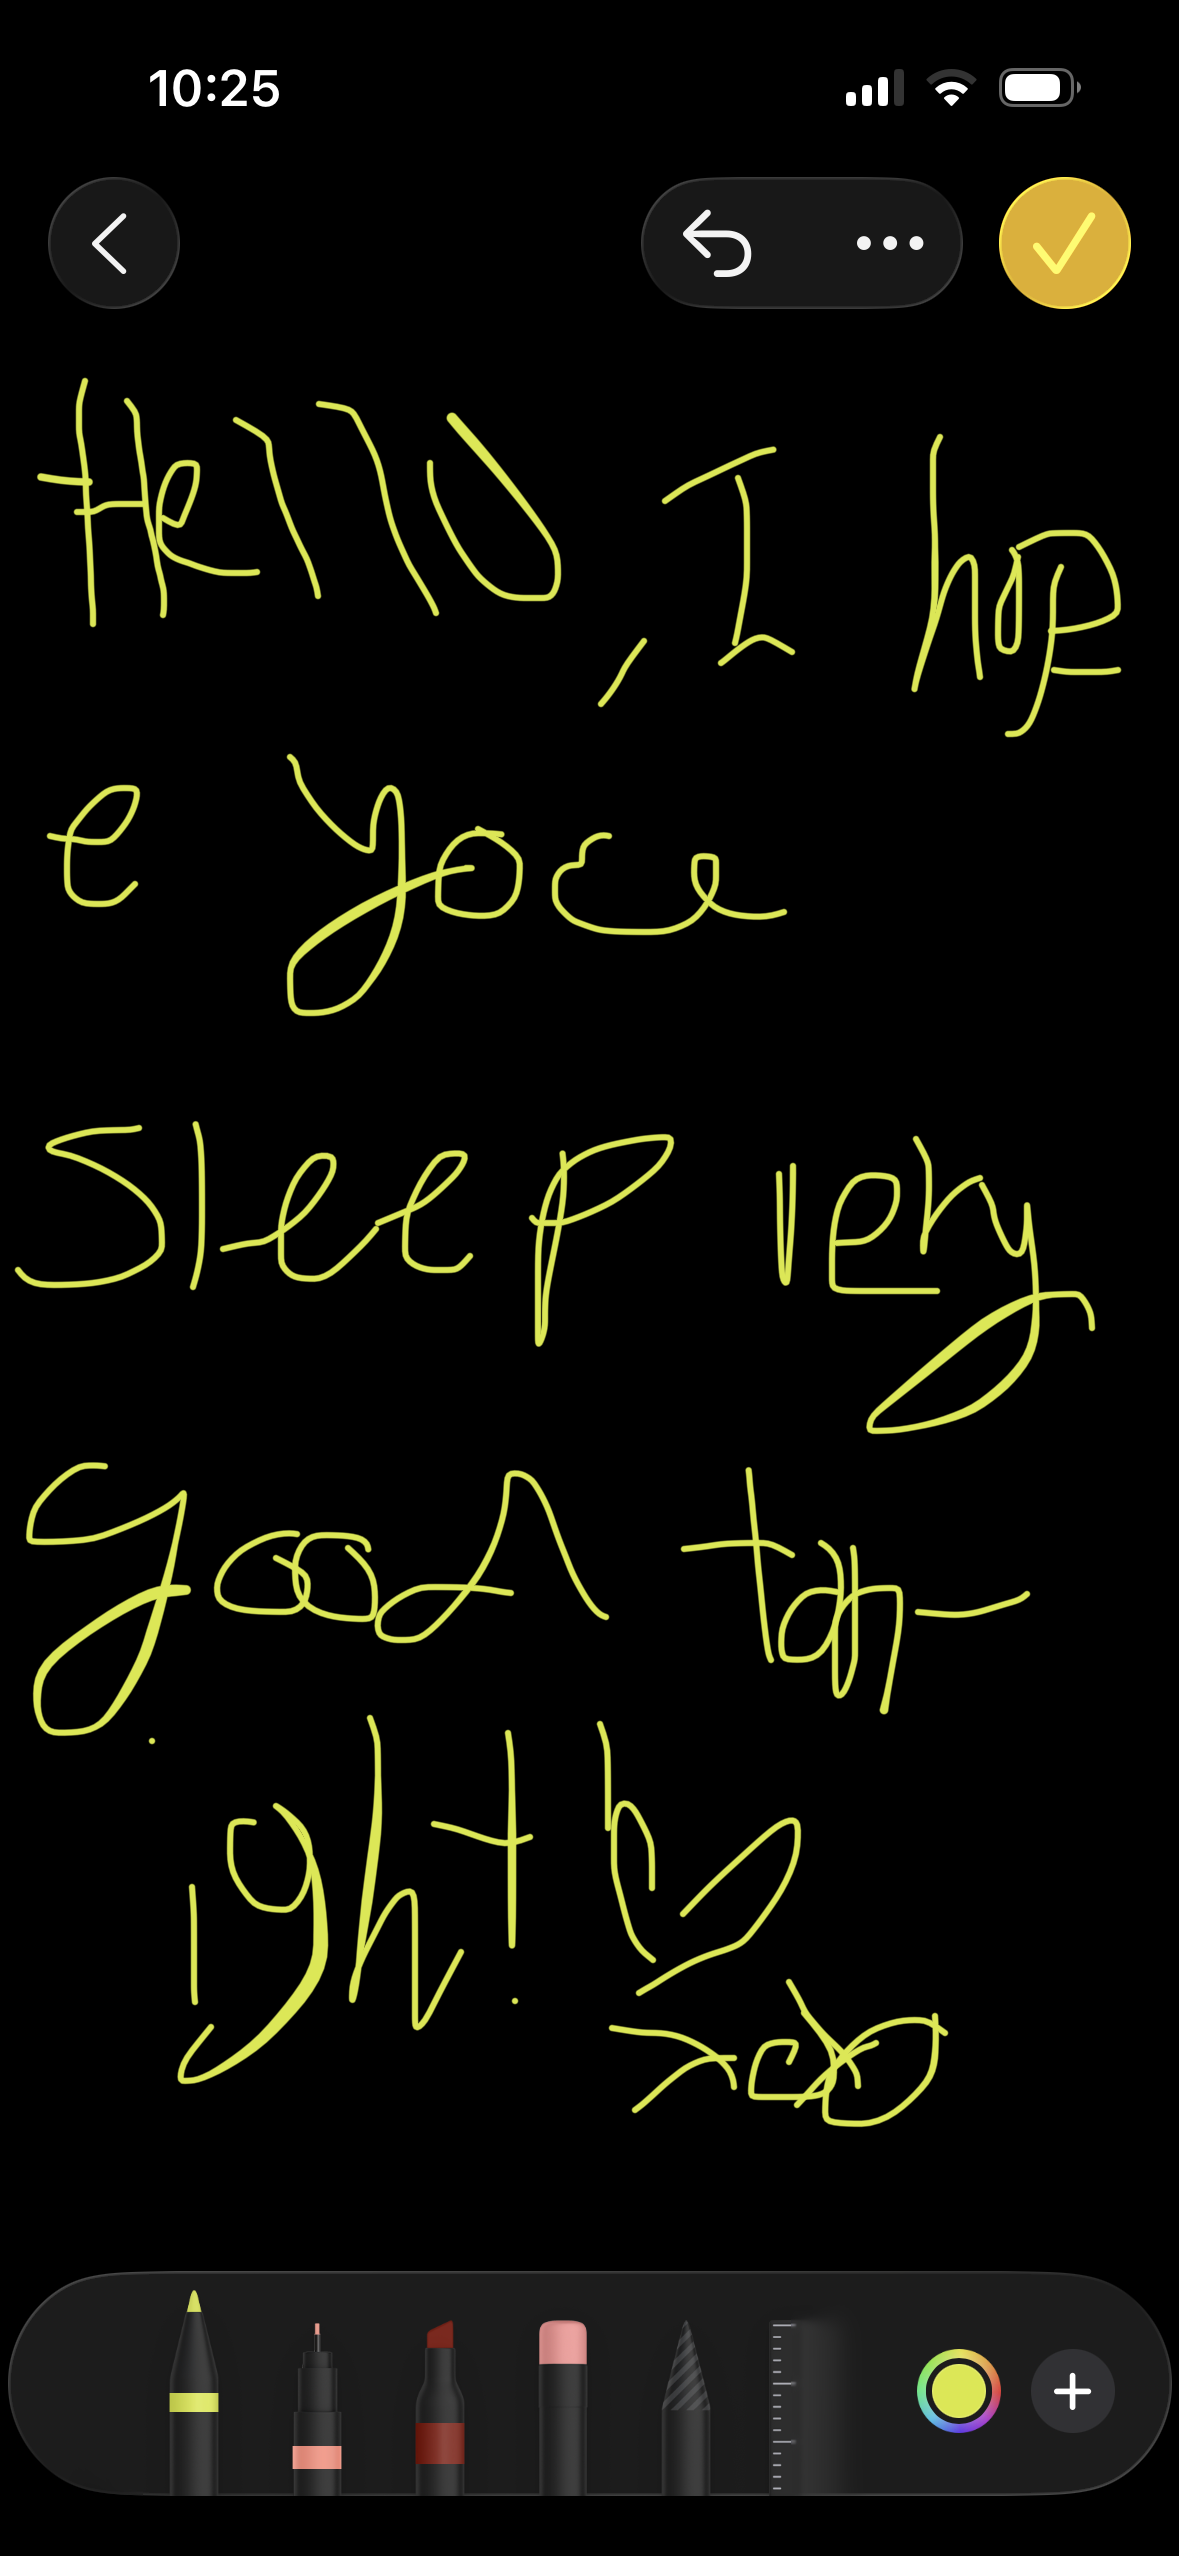 10:25
Hello, I hop
e you
sleep very
good ton-
ight!
xoxo